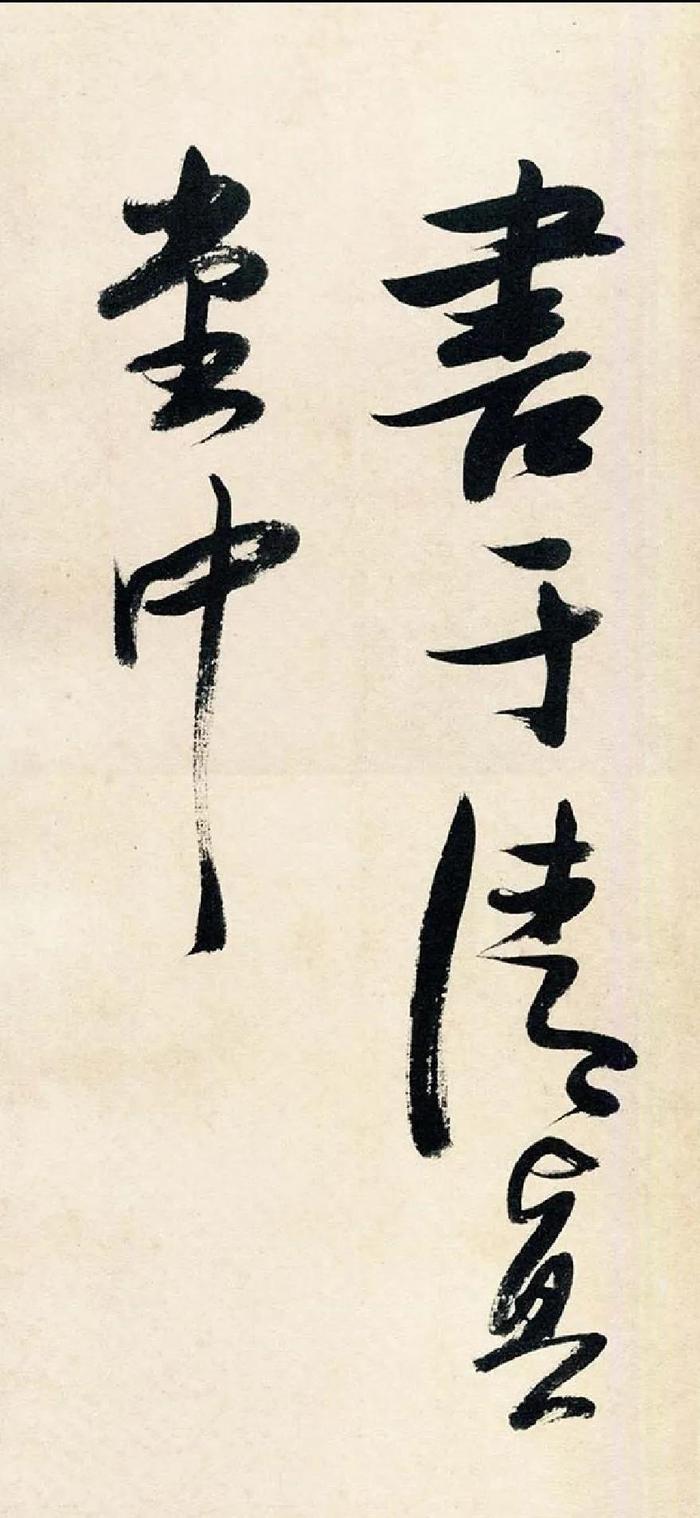 書于清真
堂中